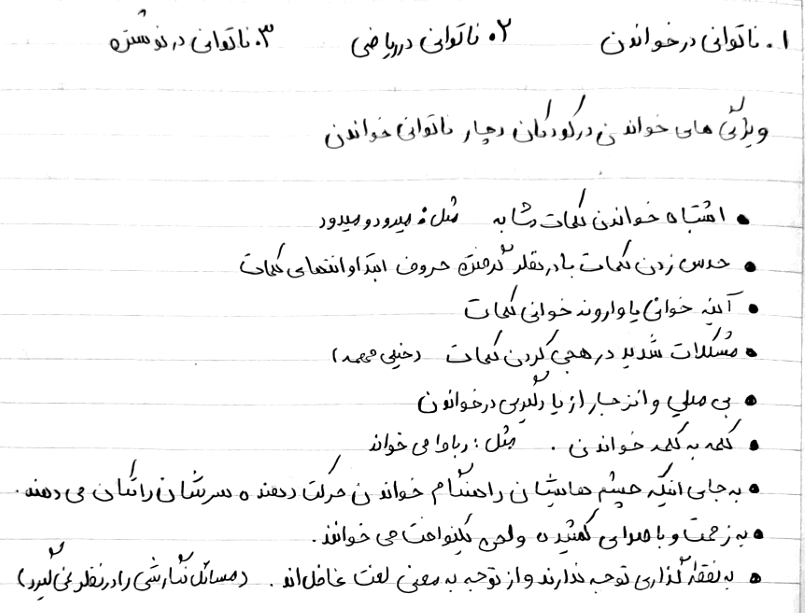 ۱. ناتوانی در خواندن ۲. ناتوانی در ریاضی ۳. ناتوانی در نوشتن
ویژگی های خواندن در کودکان دچار ناتوانی خواندن
• اشتباه خواندن کلمات مشابه مثل: میرود و میدود
• حدس زدن کلمات با در نظر گرفتن حروف ابتدا و انتهای کلمات
• آینه خوانی یا وارونه خوانی کلمات
• مشکلات شدید در هجی کردن کلمات (خیلی مهمه)
• بی میلی و انزجار از یادگیری در خواندن
• کلمه به کلمه خواندن. مثل:
• به جای اینکه چشم هایشان را هنگام خواندن حرکت دهند سرشان را تکان می دهند.
• به زحمت و با صدای کشیده و لحن یکنواخت می خوانند.
• به نقطه گذاری توجه ندارند و از توجه به معنی لغت غافل اند. (مسائل نگارشی را در نظر نمی گیرد)